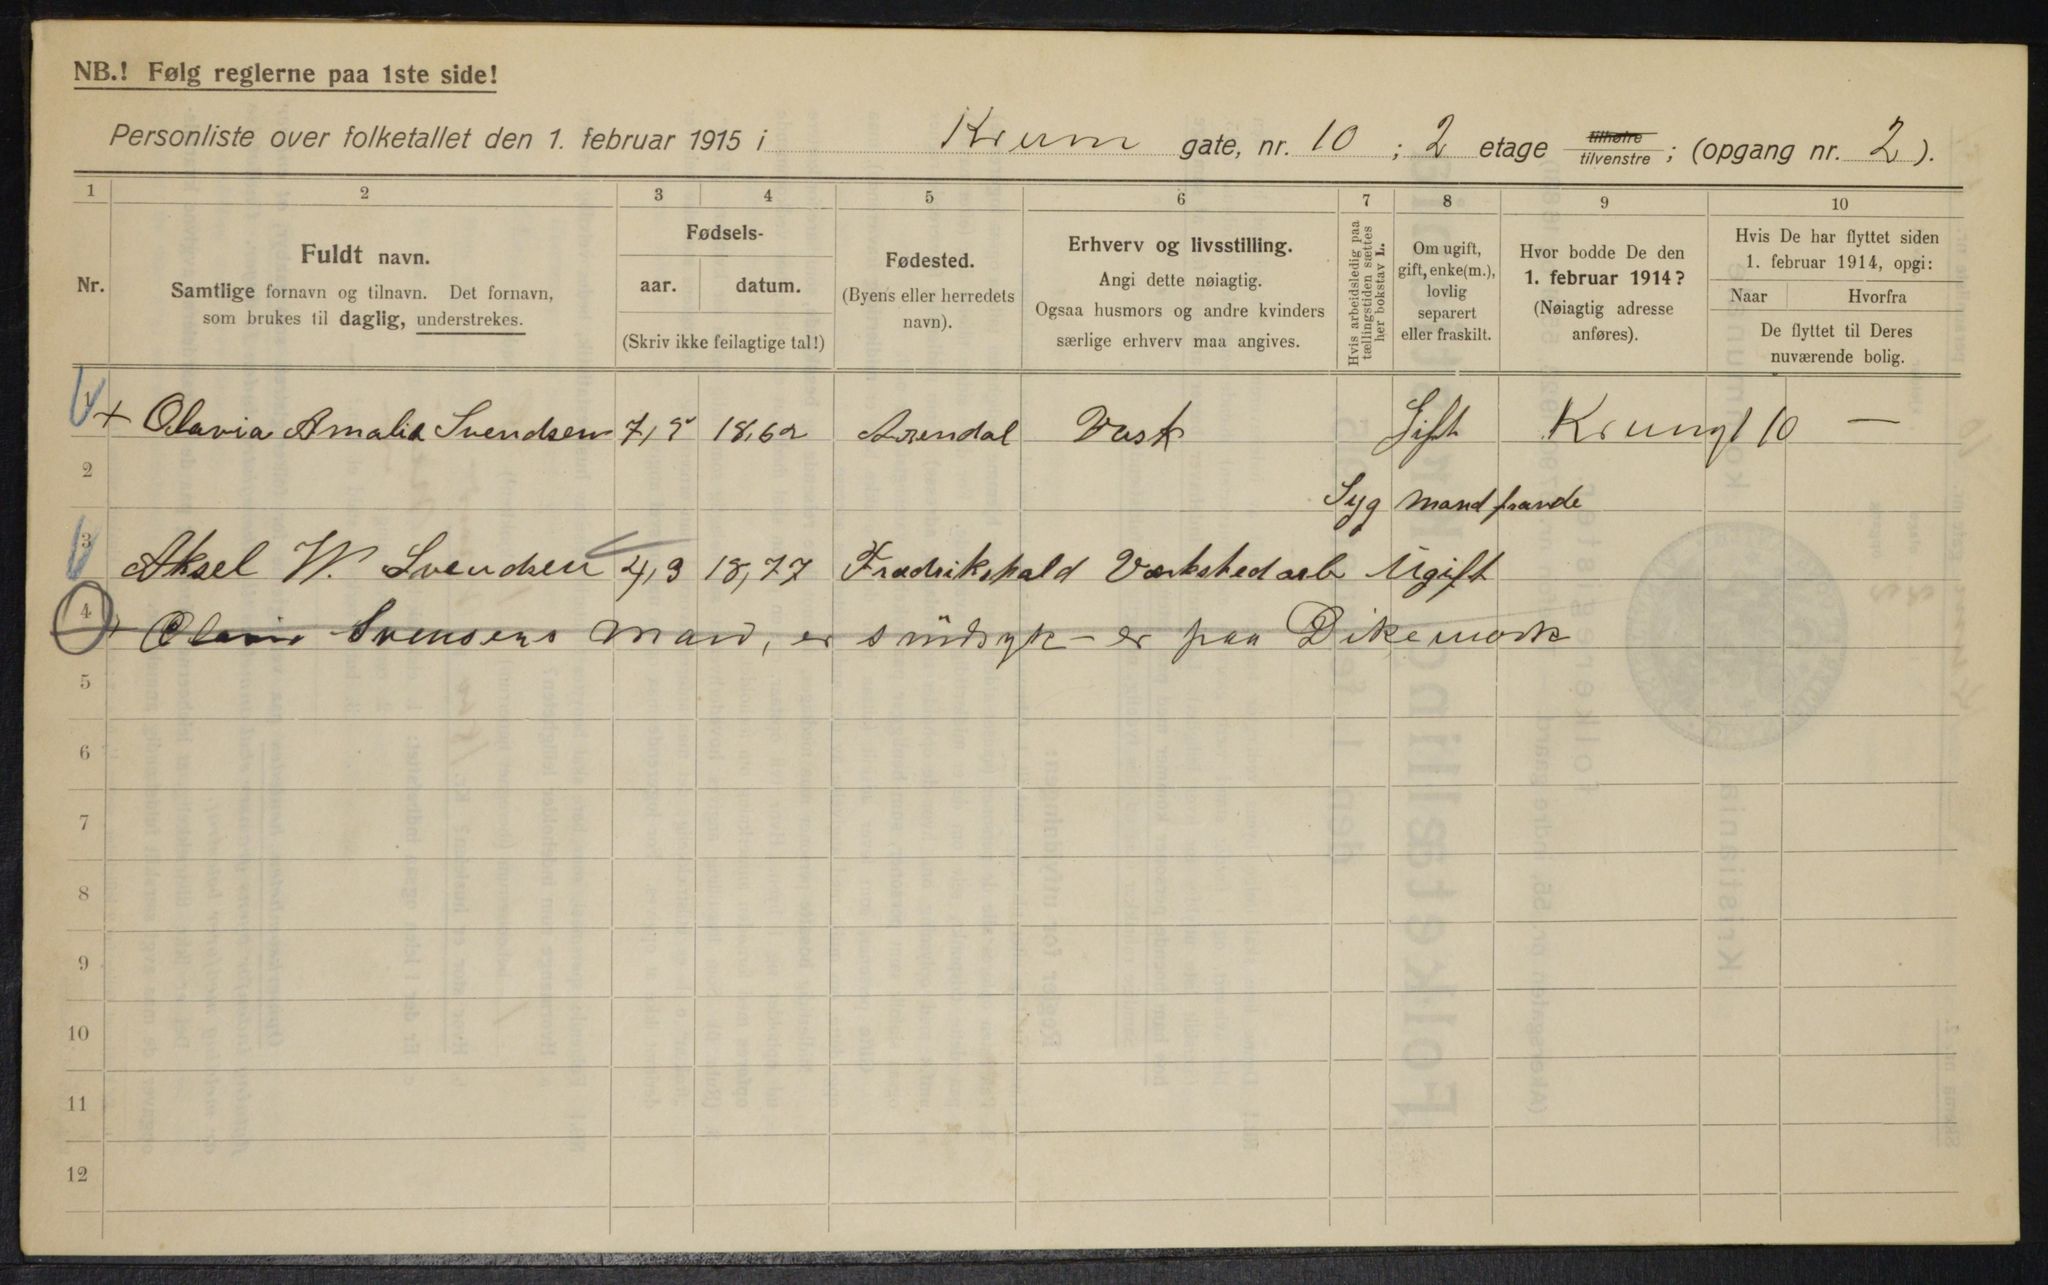 NB.! Følg reglerne paa 1ste side!
Personliste over folketallet den 1. februar 1915 i Krum gate, nr. 10 ; 2 etage tilhøire tilvenstre ; (opgang nr. 2 ).
1 2 3 4 5 6 7 8 9 10
Nr.
Fuldt navn.
Samtlige fornavn og tilnavn. Det fornavn,
som brukes til daglig, understrekes.
Fødsels-
aar. datum.
(Skriv ikke feilagtige tal!)
Fødested.
(Byens eller herredets
navn).
Erhverv og livsstilling.
Angi dette nøiagtig.
Ogsaa husmors og andre kvinders
særlige erhverv maa angives.
Hvis arbeidsledig paa
tællingstiden sættes
her bokstav L.
Om ugift,
gift, enke(m.),
lovlig
separert
eller fraskilt.
Hvor bodde De den
1. februar 1914?
(Nøiagtig adresse
anføres).
Hvis De har flyttet siden
1. februar 1914, opgi:
Naar Hvorfra
De flyttet til Deres
nuværende bolig.
1 + Olavia Amalia Svendsen 7, 18,62 Arendal Vask Gift Krumgt 10 —
2 Syg mand
3 Aksel W. Svendsen 4,3 18,77 Fredrikshald Værkstedarb Ugift
4 + Olavia Svensens mand, er sindsyk – er paa Dikemark
5
6
7
8
9
10
11
12